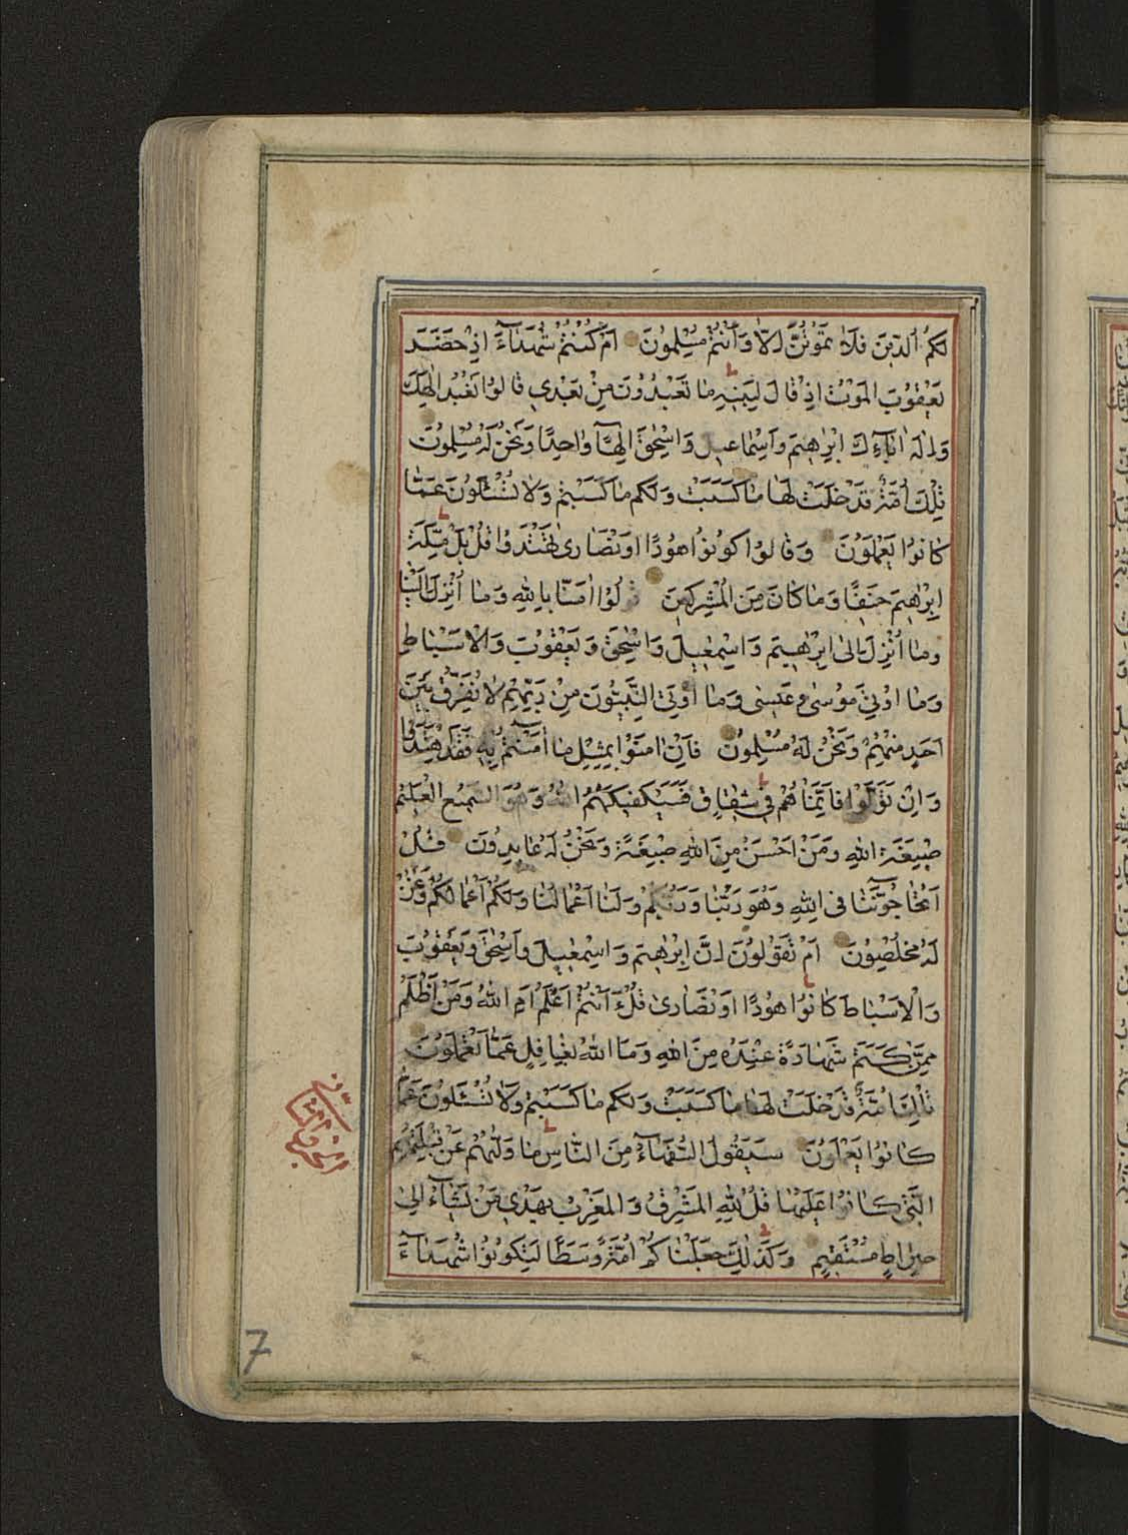 لَكُمُ الدّينَ فَلَا تَمُوتُنَّ اِلَّا وَاَنْتُمْ مُسْلِمُونَ اَمْ كُنْتُمْ شُهَدَآءَ اِذْ حَضَرَ
يَعْقُوبَ الْمَوْتُ اِذْ قَالَ لِبَنيهِ مَا تَعْبُدُونَ مِنْ بَعْدي قَالُوا نَعْبُدُ اِلٰهَكَ
وَاِلٰهَ اٰبَآءِكَ اِبْرٰهيمَ وَاِسْمَاعيلَ وَاِسْحٰقَ اِلٰهًا وَاحِدًا وَنَحْنُ لَهُ مُسْلِمُونَ
تِلْكَ اُمَّةٌ قَدْ خَلَتْ لَهَا مَا كَسَبَتْ وَلَكُمْ مَا كَسَبْتُمْ وَلَا تُسْئَلُونَ عَمَّا
كَانُوا يَعْمَلُونَ وَقَالُوا كُونُوا هُودًا اَوْ نَصَارٰى تَهْتَدُوا قُلْ بَلْ مِلَّةَ
اِبْرٰهيمَ حَنيفًا وَمَا كَانَ مِنَ الْمُشْرِكينَ قُولُوا اٰمَنَّا بِاللّٰهِ وَمَا اُنْزِلَ اِلَيْنَا
وَمَا اُنْزِلَ اِلٰى اِبْرٰهيمَ وَاِسْمٰعيلَ وَاِسْحٰقَ وَيَعْقُوبَ وَالْاَسْبَاطِ
وَمَا اُوتِيَ مُوسٰى وَعيسٰى وَمَا اُوتِيَ النَّبِيُّونَ مِنْ رَبِّهِمْ لَا نُفَرِّقُ بَيْنَ
اَحَدٍ مِنْهُمْ وَنَحْنُ لَهُ مُسْلِمُونَ فَاِنْ اٰمَنُوا بِمِثْلِ مَا اٰمَنْتُمْ بِهِ فَقَدِ اهْتَدَوْا
وَاِنْ تَوَلَّوْا فَاِنَّمَا هُمْ في شِقَاقٍ فَسَيَكْفيكَهُمُ اللّٰهُ وَهُوَ السَّميعُ الْعَليمُ
صِبْغَةَ اللّٰهِ وَمَنْ اَحْسَنُ مِنَ اللّٰهِ صِبْغَةً وَنَحْنُ لَهُ عَابِدُونَ قُلْ
اَتُحَاجُّونَنَا فِي اللّٰهِ وَهُوَ رَبُّنَا وَرَبُّكُمْ وَلَنَا اَعْمَالُنَا وَلَكُمْ اَعْمَالُكُمْ وَنَحْنُ
لَهُ مُخْلِصُونَ اَمْ تَقُولُونَ اِنَّ اِبْرٰهيمَ وَاِسْمٰعيلَ وَاِسْحٰقَ وَيَعْقُوبَ
وَالْاَسْبَاطَ كَانُوا هُودًا اَوْ نَصَارٰى قُلْ ءَاَنْتُمْ اَعْلَمُ اَمِ اللّٰهُ وَمَنْ اَظْلَمُ
مِمَّنْ كَتَمَ شَهَادَةً عِنْدَهُ مِنَ اللّٰهِ وَمَا اللّٰهُ بِغَافِلٍ عَمَّا تَعْمَلُونَ
تِلْكَ اُمَّةٌ قَدْ خَلَتْ لَهَا مَا كَسَبَتْ وَلَكُمْ مَا كَسَبْتُمْ وَلَا تُسْئَلُونَ عَمَّا
كَانُوا يَعْمَلُونَ سَيَقُولُ السُّفَهَآءُ مِنَ النَّاسِ مَا وَلّٰهُمْ عَنْ قِبْلَتِهِمُ
الَّتي كَانُوا عَلَيْهَا قُلْ لِلّٰهِ الْمَشْرِقُ وَالْمَغْرِبُ يَهْدي مَنْ يَشَآءُ اِلٰى
صِرَاطٍ مُسْتَقيمٍ وَكَذٰلِكَ جَعَلْنَاكُمْ اُمَّةً وَسَطًا لِتَكُونُوا شُهَدَآءَ
7